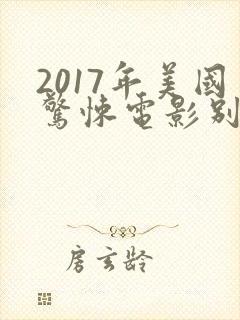 2017年美國
驚悚電影别
房玄龄